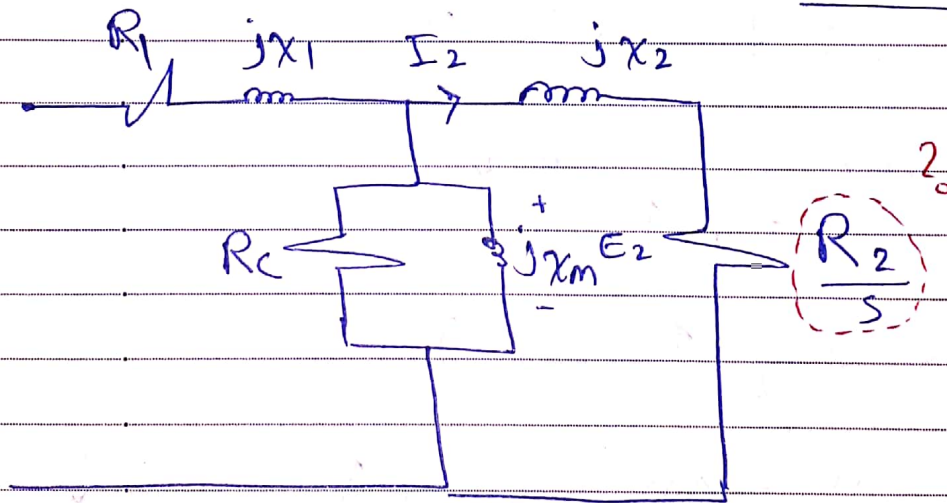 R1 jx1 I2 jx2
?
Rc + jxm E2 - R2/s